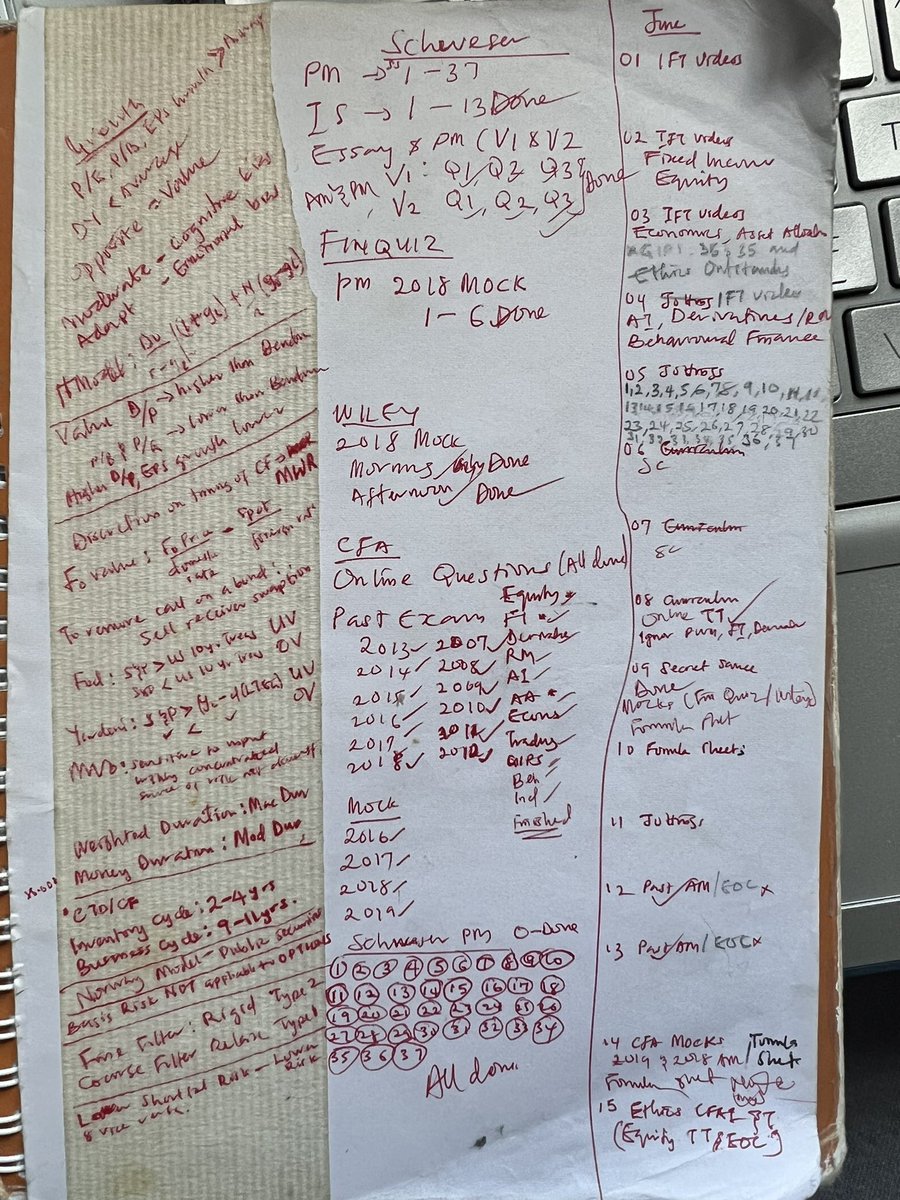 Growth
P/E, P/B, EPS Growth > Average
DY < average
Opposite = Value
Moderate - Cognitive bias
Adapt - Emotional bias
H Model: D0 (1+gL) + N (gs-gL)
r - gL 2
Value D/P → higher than Benchm
P/B & P/E → lower than Benchm
Higher D/P, EPS growth lower
Discretion on timing of CF → MWR
domestic foreign rate
rate
To remove call on a bond:
Sell receiver swaption
Fed: S&P > US 10 yr. Treas UV
S&P < US 10 yr. Treas OV
Yardeni: S&P > UV
✓ < ✓ OV
MVO: sensitive to input
highly concentrated
source of risk not
Weighted Duration: Mac Dur
Money Duration: Mod Dur
• CTD/CF
Inventory Cycle: 2-4 yrs
Business Cycle: 9-11 yrs.
Norway Model - Public securities
Basis Risk NOT applicable to OPTIONS
Fine Filter: Rigid Type 2
Coarse Filter Relaxe Type 1
Lower Shortfall Risk - Lower Risk
& vice versa.
Scheveser
PM → 1 - 37
IS → 1 - 13 Done
Essay & PM (V1 & V2
AM & PM V1: Q1, Q2 Q3 Done
V2 Q1, Q2, Q3
FINQUIZ
PM 2018 MOCK
1 - 6 Done
WILEY
2018 Mock
Morning Done
Afternoon ✓ Done
CFA
Online Questions (All done)
Past Exam
2013 ✓ 2007 ✓
2014 ✓ 2008 ✓
2015 2009 ✓
2016 ✓ 2010 ✓
2017 ✓ 2011 ✓
2018 ✓ 2012 ✓
Equity *
FI * ✓
Derivatives
RM ✓
AI ✓
AA * ✓
Econs ✓
Trading ✓
GIPS ✓
Beh ✓
Ind ✓
Finished
Mock
2016 ✓
2017 ✓
2018 ✓
2019 ✓
Schweser PM O-Done
1 2 3 4 5 6 7 8 9 10
11 12 13 14 15 16 17 18
19 20 21 22 23 24 25 26
27 28 29 30 31 32 33 34
35 36 37
All done
June
01 IFT videos
02 IFT videos
Fixed Income
Equity
03 IFT videos
Economics, Asset Allocatn
GIPS, 36, 35 and
Ethics Outstandg
04 IFT videos
AI, Derivatives / RM
Behavioural Finance
05 Jottngs
1, 2, 3, 4, 5, 6, 7, 8, 9, 10, 11, 12,
13, 14, 15, 16, 17, 18, 19, 20, 21, 22
23, 24, 25, 26, 27, 28, 29, 30
31, 32, 33, 34, 35, 36, 37
06 Curriculum
SC
07 Curriculum
SC
08 Curriculum
Online TT ✓
Ignor FI,
09 Secret Sauce
Done
Mocks (Fin Quiz / Wiley)
Formula Sheet
10 Formula Sheets
11 Jottngs
12 Past AM / EOC x
13 Past AM / EOC x
14 CFA MOCKS / Formula
2019 & 2018 AM Sheet
Formula Sheet
15 Ethics CFAI TT
(Equity TT & EOC)